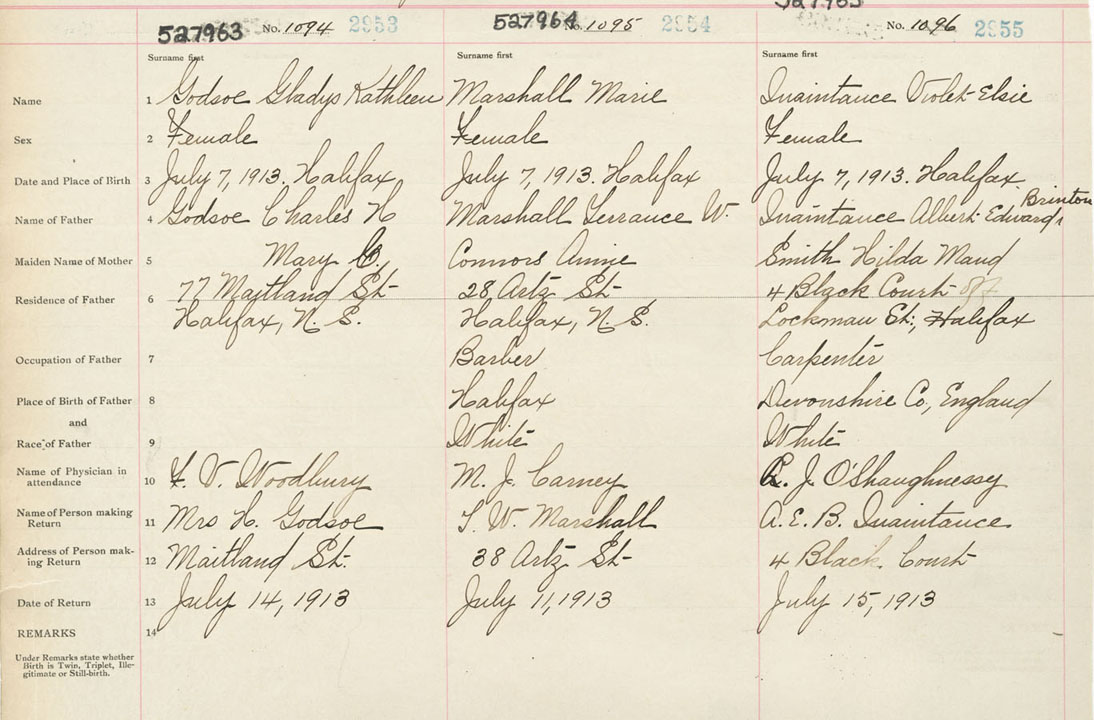 527963 No. 1094 2953
527964 No. 1095 2954
527965 No. 1096 2955
Surname first Surname first Surname first
Name 1 Godsoe Gladys Kathleen Marshall Marie Quaintance Violet Elsie
Sex 2 Female Female Female
Date and Place of Birth 3 July 7, 1913. Halifax July 7, 1913. Halifax July 7, 1913. Halifax
Brinton
Name of Father 4 Godsoe Charles H Marshall Terrance W. Quaintance Albert Edward
Maiden Name of Mother 5 Mary Connors Annie Smith Hilda Maud
Residence of Father 6 77 Maitland St 28 Artz St 4 Black Court off
Halifax, N. S. Halifax, N. S. Lockman St., Halifax
Occupation of Father 7 Barber Carpenter
Place of Birth of Father 8 Halifax Devonshire Co., England
and
Race of Father 9 White White
Name of Physician in
attendance 10 F. V. Woodbury M. J. Carney J. O'Shaughnessy
Name of Person making
Return 11 Mrs H. Godsoe T. W. Marshall A. E. B. Quaintance
Address of Person mak-
ing Return 12 Maitland St. 38 Artz St 4 Black Court
Date of Return 13 July 14, 1913 July 11, 1913 July 15, 1913
REMARKS 14
Under Remarks state whether
Birth is Twin, Triplet, Ille-
gitimate or Still-birth.